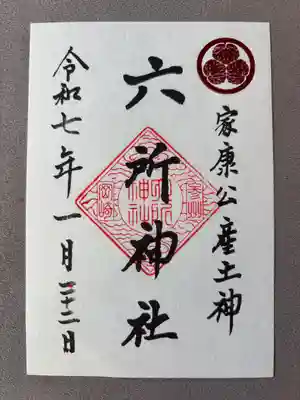 家康公産土神
六所神社
岡崎
令和七年一月二十二日